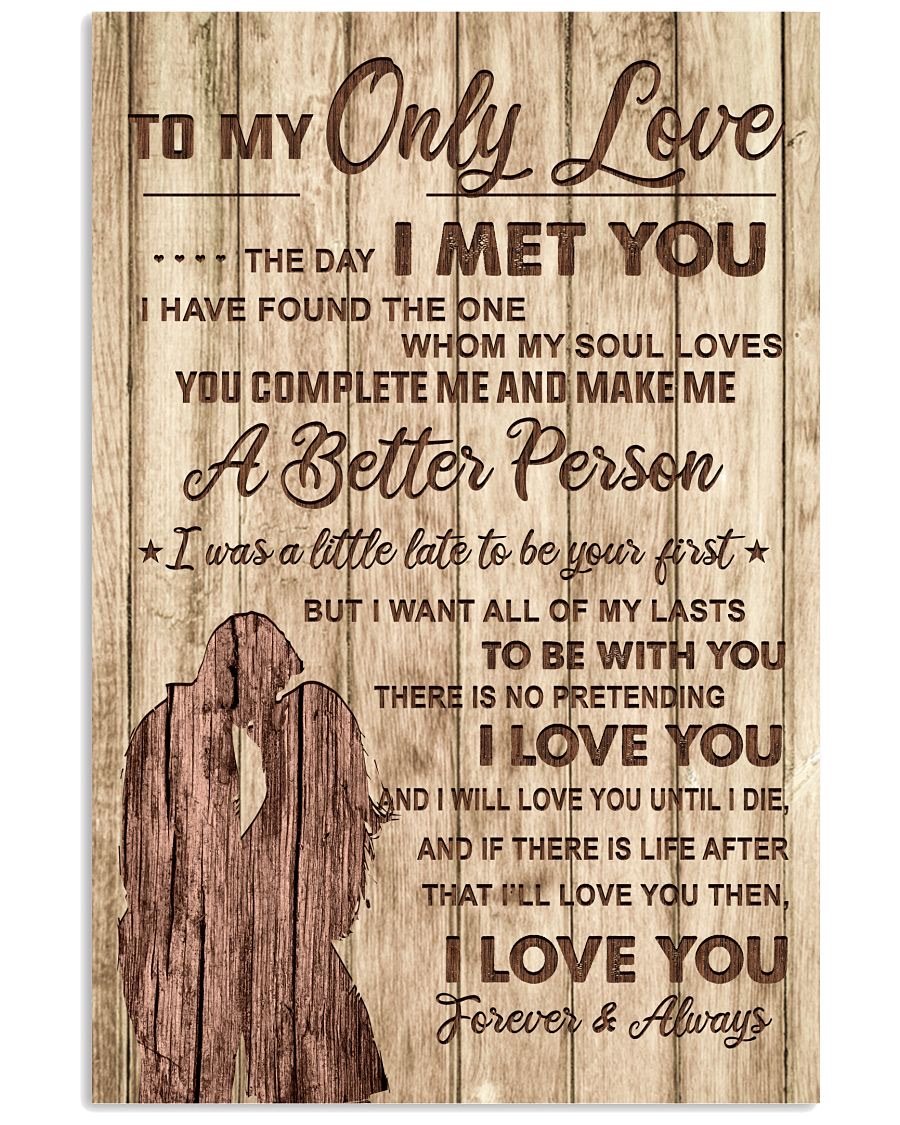 TO MY Only Love
THE DAY I MET YOU
I HAVE FOUND THE ONE
WHOM MY SOUL LOVES
YOU COMPLETE ME AND MAKE ME
A Better Person
I was a little late to be your first
BUT I WANT ALL OF MY LASTS
TO BE WITH YOU
THERE IS NO PRETENDING
I LOVE YOU
AND I WILL LOVE YOU UNTIL I DIE,
AND IF THERE IS LIFE AFTER
THAT I'LL LOVE YOU THEN,
I LOVE YOU
Forever & Always